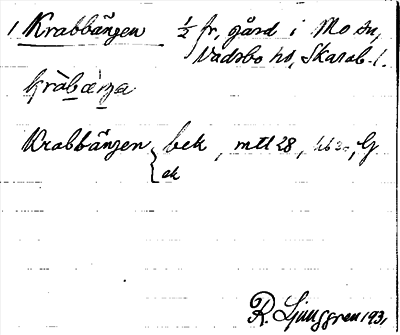 1 Krabbängen ½ fr, gård i Mo sn,
Vadsbo hd, Skarab. l.
kràbæ̀ŋa
Krabbängen { bek, mtl 28, G
ek
R. Ljunggren 1931